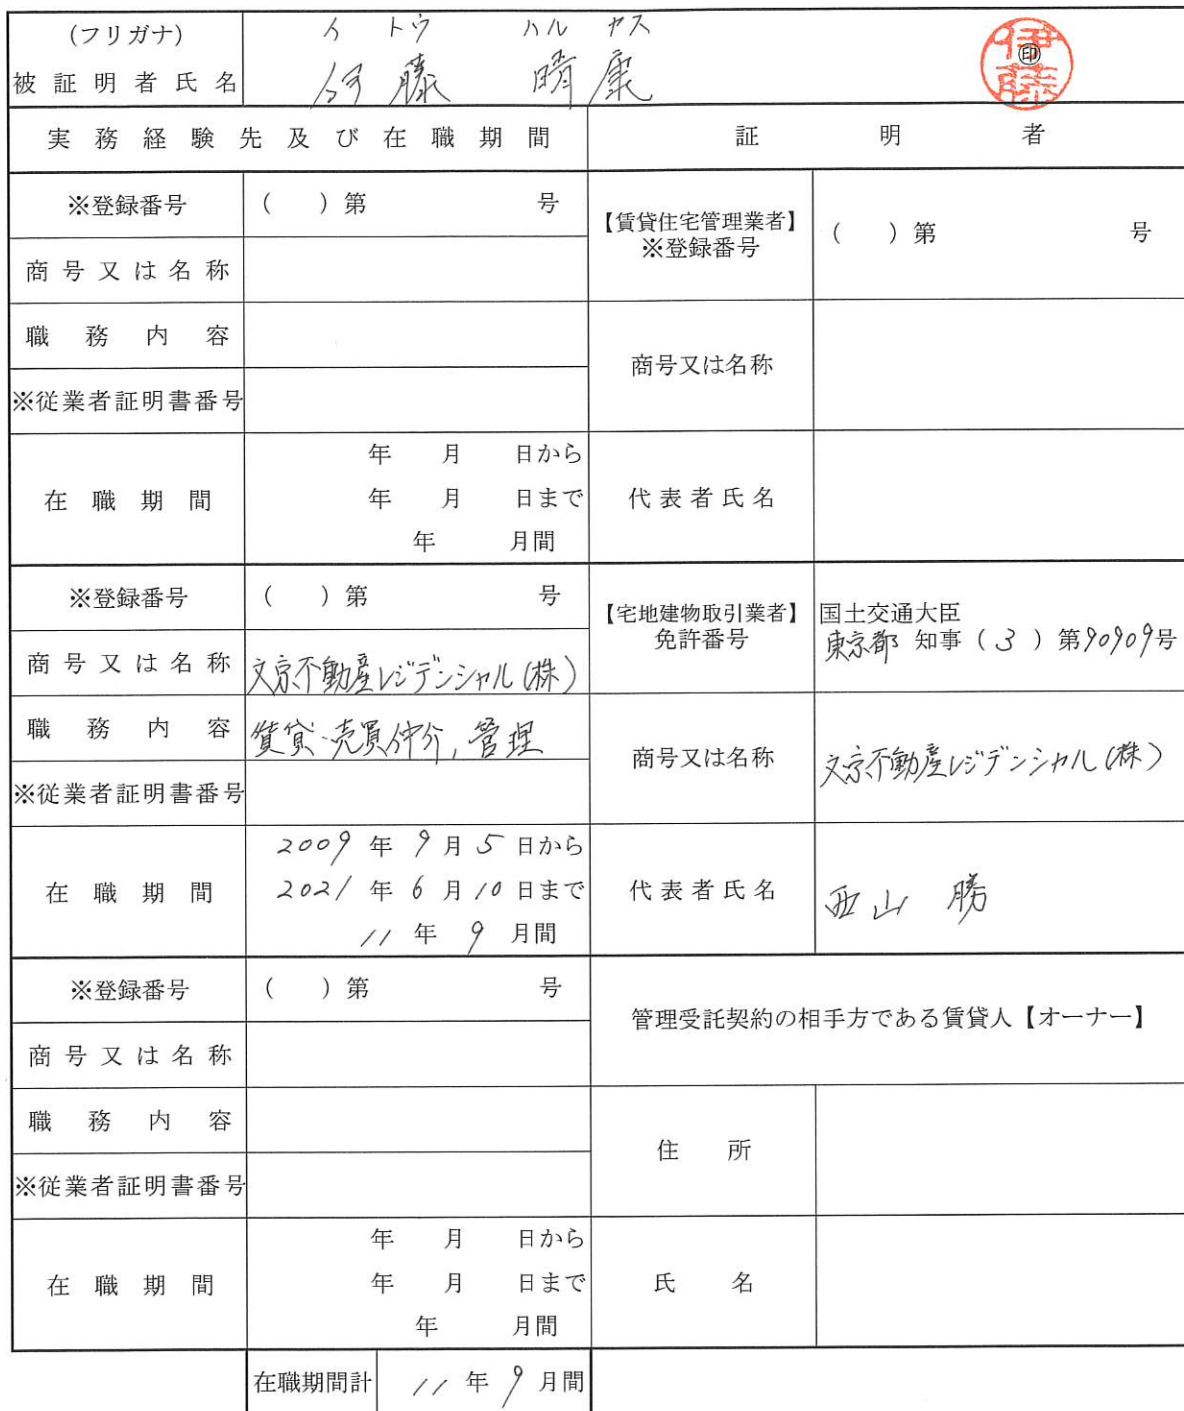 (フリガナ) イトウ ハルヤス
被証明者氏名 伊藤 晴康 ㊞ 伊藤
実務経験先及び在職期間 証明者
※登録番号 ( )第 号
【賃貸住宅管理業者】
※登録番号 ( )第 号
商号又は名称
職務内容
商号又は名称
※従業者証明書番号
在職期間
年 月 日から
年 月 日まで
年 月間
代表者氏名
※登録番号 ( )第 号
【宅地建物取引業者】
免許番号
国土交通大臣
東京都 知事 ( 3 ) 第90909号
商号又は名称 文京不動産レジデンシャル(株)
職務内容 賃貸・売買仲介, 管理
商号又は名称 文京不動産レジデンシャル(株)
※従業者証明書番号
在職期間
2009 年 9 月 5 日から
2021 年 6 月 10 日まで
11 年 9 月間
代表者氏名 西山 勝
※登録番号 ( )第 号
管理受託契約の相手方である賃貸人【オーナー】
商号又は名称
職務内容
住所
※従業者証明書番号
在職期間
年 月 日から
年 月 日まで
年 月間
氏名
在職期間計 11 年 9 月間